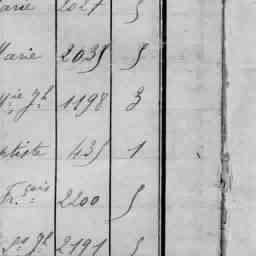 arie 2021 5
Marie 2035 5
Mie Jh 1198 3
ptiste 435 1
Fr.çois 2200 5
Jh 2191 5